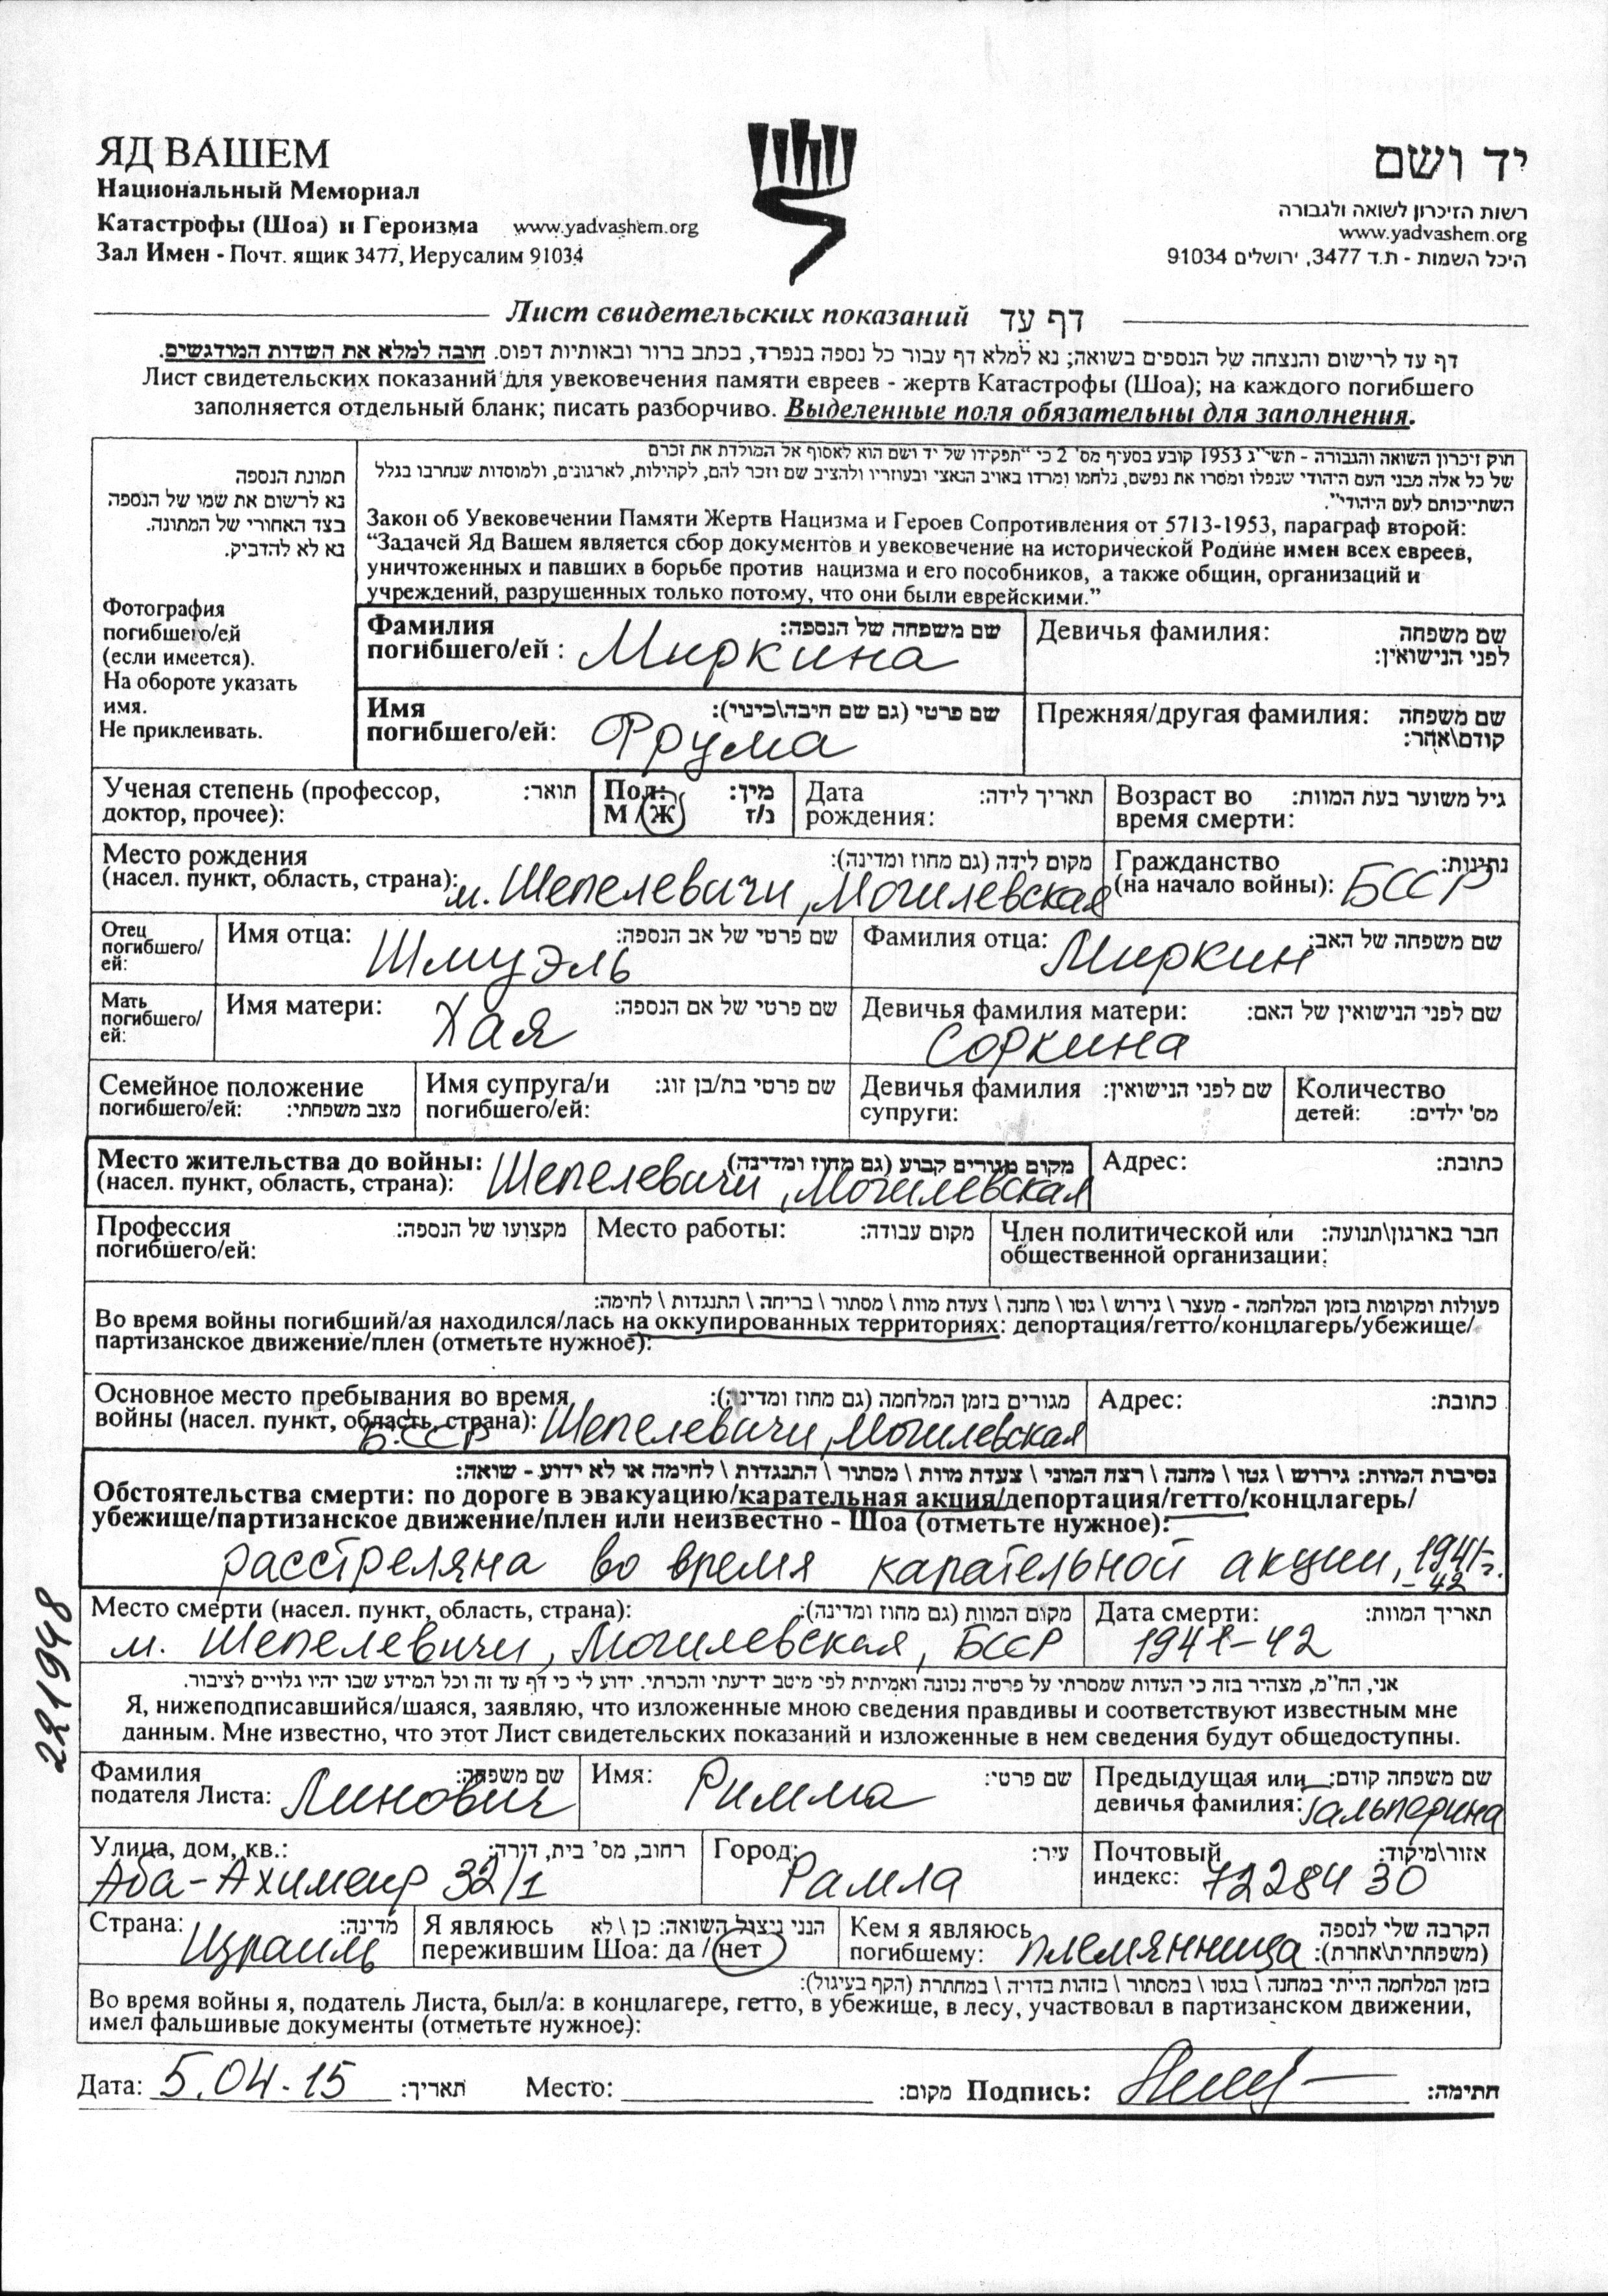 ЯД ВАШЕМ
Национальный Мемориал
Катастрофы (Шоа) и Героизма www.yadvashem.org
Зал Имен - Почт. ящик 3477, Иерусалим 91034
יד ושם
רשות הזיכרון לשואה ולגבורה
www.yadvashem.org
היכל השמות - ת.ד 3477, ירושלים 91034
Лист свидетельских показаний דף עד
דף עד לרישום והנצחה של הנספים בשואה; נא למלא דף עבור כל נספה בנפרד, בכתב ברור ובאותיות דפוס. חובה למלא את השדות המודגשים.
Лист свидетельских показаний для увековечения памяти евреев - жертв Катастрофы (Шоа); на каждого погибшего
заполняется отдельный бланк; писать разборчиво. Выделенные поля обязательны для заполнения.
תמונת הנספה
נא לרשום את שמו של הנספה
בצד האחורי של המתונה.
נא לא להדביק.
Фотография
погибшего/ей
(если имеется).
На обороте указать
имя.
Не приклеивать.
חוק זיכרון השואה והגבורה - תשי"ג 1953 קובע בסעיף מס' 2 כי "תפקידו של יד ושם הוא לאסוף אל המולדת את זכרם
של כל אלה מבני העם היהודי שנפלו ומסרו את נפשם, נלחמו ומרדו באויב הנאצי ובעוזריו ולהציב שם וזכר להם, לקהילות, לארגונים, ולמוסדות שנחרבו בגלל
השתייכותם לעם היהודי".
Закон об Увековечении Памяти Жертв Нацизма и Героев Сопротивления от 5713-1953, параграф второй:
“Задачей Яд Вашем является сбор документов и увековечение на исторической Родине имен всех евреев,
уничтоженных и павших в борьбе против нацизма и его пособников, а также общин, организаций и
учреждений, разрушенных только потому, что они были еврейскими.”
Фамилия שם משפחה של הנספה:
погибшего/ей : Миркина
Девичья фамилия: שם משפחה
לפני הנישואין:
Имя שם פרטי (גם שם חיבה\כינוי):
погибшего/ей: Фрума
Прежняя/другая фамилия: שם משפחה
קודם\אחר:
Ученая степень (профессор, תואר:
доктор, прочее):
Пол: מין:
М / Ж ז/נ
Дата תאריך לידה:
рождения:
Возраст во גיל משוער בעת המוות:
время смерти:
Место рождения מקום לידה (גם מחוז ומדינה):
(насел. пункт, область, страна): м. Шепелевичи, Могилевская
Гражданство נתינות:
(на начало войны): БССР
Отец
погибшего/
ей:
Имя отца: שם פרטי של אב הנספה:
Шмуэль
Фамилия отца: שם משפחה של האב:
Миркин
Мать
погибшего/
ей:
Имя матери: שם פרטי של אם הנספה:
Хая
Девичья фамилия матери: שם לפני הנישואין של האם:
Соркина
Семейное положение
погибшего/ей: מצב משפחתי:
Имя супруга/и שם פרטי בת/בן זוג:
погибшего/ей:
Девичья фамилия שם לפני הנישואין:
супруги:
Количество
детей: מס' ילדים:
Место жительства до войны: מקום מגורים קבוע (גם מחוז ומדינה)
(насел. пункт, область, страна): Шепелевичи, Могилевская
Адрес: כתובת:
Профессия מקצועו של הנספה:
погибшего/ей:
Место работы: מקום עבודה:
Член политической или חבר בארגון\תנועה:
общественной организации:
פעולות ומקומות בזמן המלחמה - מעצר \ גירוש \ גטו \ מחנה \ צעדת מוות \ מסתור \ בריחה \ התנגדות \ לחימה:
Во время войны погибший/ая находился/лась на оккупированных территориях: депортация/гетто/концлагерь/убежище/
партизанское движение/плен (отметьте нужное):
Основное место пребывания во время מגורים בזמן המלחמה (גם מחוז ומדינה):
войны (насел. пункт, область, страна): Шепелевичи, Могилевская
БССР
Адрес: כתובת:
נסיבות המוות: גירוש \ גטו \ מחנה \ רצח המוני \ צעדת מוות \ מסתור \ התנגדות \ לחימה או לא ידוע - שואה:
Обстоятельства смерти: по дороге в эвакуацию/карательная акция/депортация/гетто/концлагерь/
убежище/партизанское движение/плен или неизвестно - Шоа (отметьте нужное):
расстреляна во время карательной акции, 1941г.
-42
Место смерти (насел. пункт, область, страна): מקום המוות (גם מחוז ומדינה):
м. Шепелевичи, Могилевская, БССР
Дата смерти: תאריך המוות:
1941-42
אני, הח"מ, מצהיר בזה כי העדות שמסרתי על פרטיה נכונה ואמיתית לפי מיטב ידיעתי והכרתי. ידוע לי כי דף עד זה וכל המידע שבו יהיו גלויים לציבור.
Я, нижеподписавшийся/шаяся, заявляю, что изложенные мною сведения правдивы и соответствуют известным мне
данным. Мне известно, что этот Лист свидетельских показаний и изложенные в нем сведения будут общедоступны.
Фамилия שם משפחה:
подателя Листа: Линович
Имя: Римма שם פרטי:
Предыдущая или שם משפחה קודם:
девичья фамилия: Гальперина
Улица, дом, кв.: רחוב, מס' בית, דירה:
Аба-Ахимеир 32/1
Город: עיר:
Рамла
Почтовый אזור\מיקוד:
индекс: 7228430
Страна: מדינה:
Израиль
Я являюсь הנני ניצול השואה: כן \ לא
пережившим Шоа: да / нет
Кем я являюсь הקרבה שלי לנספה
погибшему: племянница (משפחתית\אחרת):
בזמן המלחמה הייתי במחנה \ בגטו \ במסתור \ בזהות בדויה \ במחתרת (הקף בעיגול):
Во время войны я, податель Листа, был/а: в концлагере, гетто, в убежище, в лесу, участвовал в партизанском движении,
имел фальшивые документы (отметьте нужное):
Дата: 5.04.15 תאריך: Место: מקום: Подпись: חתימה:
221948